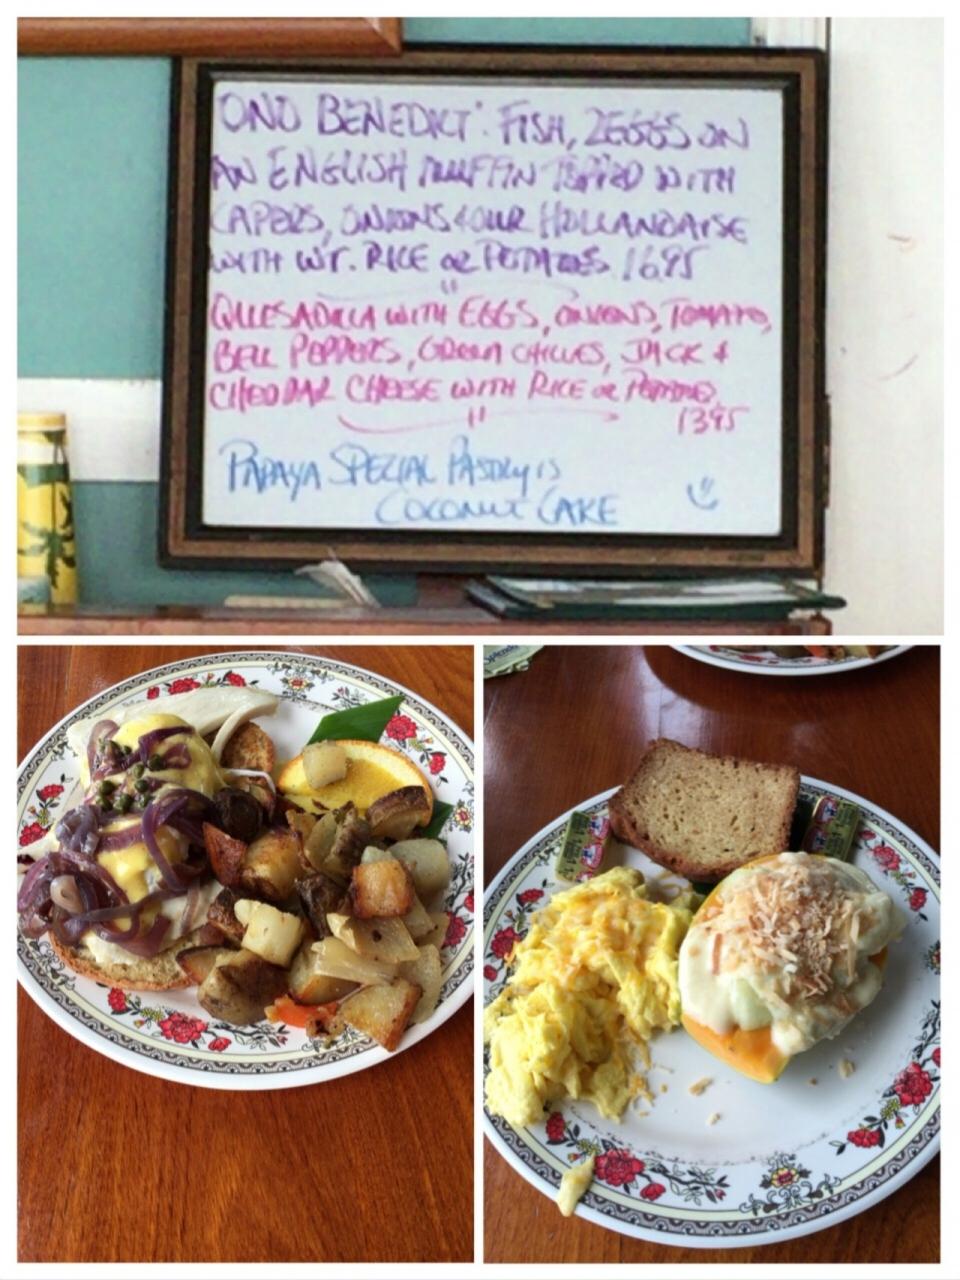 ONO BENEDICT: FISH, 2EGGS ON
AN ENGLISH MUFFIN TOPPED WITH
CAPERS, ONIONS & OUR HOLLANDAISE
WITH WT. RICE OR POTATOES 1695
QUESADILLA WITH EGGS, ONIONS, TOMATO,
BELL PEPPERS, GREEN CHILIES, JACK &
CHEDDAR CHEESE WITH RICE OR POTATOES
1395
PAPAYA SPECIAL PASTRY IS
COCONUT CAKE
Splenda